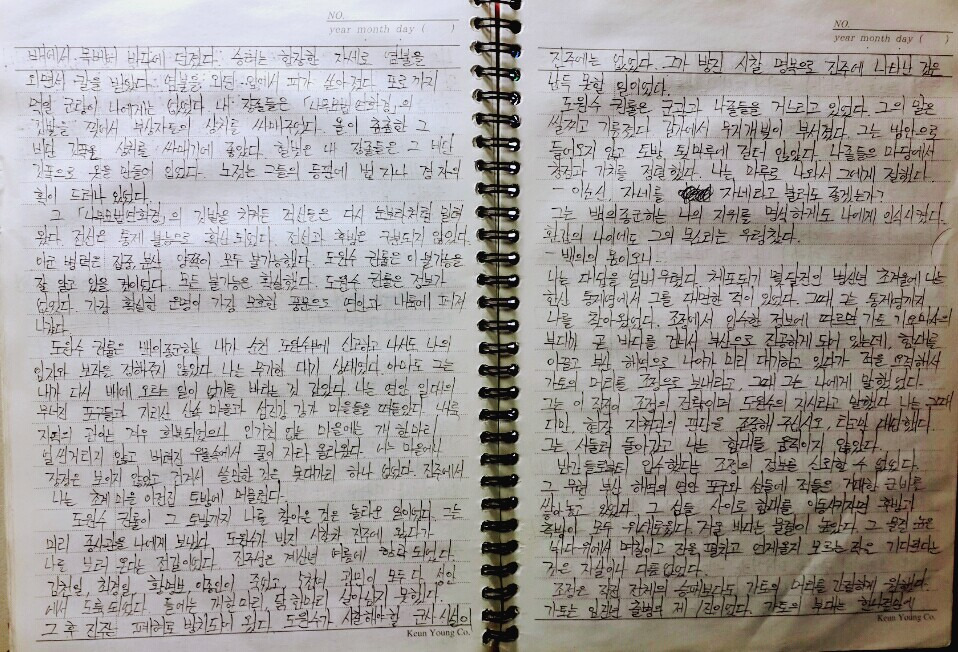 NO.
year month day ( )
배에서 목베어 바다에 던졌다. 승려는 합장한 자세로 염불을
외면서 칼을 받았다. 염불을 외던 입에서 피가 쏟아졌다. 포로까지
먹일 군량이 나에게는 없었다. 내 장졸들은 「나무묘법연화경」의
깃발을 찢어서 부상자들의 상처를 싸매주었다. 올이 촘촘한 그
비단 깃폭은 상처를 싸매기에 좋았다. 헐벗은 내 장졸들은 그 비단
깃폭으로 옷을 만들어 입었다. 노젓는 그들의 등판에 법 자나 경 자의
획이 드러나 있었다.
그 「나무묘법연화경」의 깃발을 치켜든 적선들은 다시 눈보라처럼 밀려
왔다. 전선은 통제 불능으로 확산되었다. 전선과 후방은 구분되지 않았다.
아군 병력은 집중, 분산 양쪽이 모두 불가능했다. 도원수 권률은 이 불가능을
잘 알고 있을 것이었다. 모든 불가능은 확실했다. 도원수 권률은 정보가
없었다. 가장 확실한 운명이 가장 모호한 풍문으로 연안과 내륙에 퍼져
나갔다.
도원수 권률은 백의종군하는 내가 순천 도원수부에 신고하고 나서도 나의
임지와 보직을 정해주지 않았다. 나는 무기한 대기 상태였다. 아마도 그는
내가 다시 배에 오르는 일이 없기를 바라는 것 같았다. 나는 연안 일대의
무너진 포구들과 지리산 산속 마을과 섬진강 강가 마을들을 떠돌았다. 내륙
지역의 관아는 겨우 회복되었으나 인기척 없는 마을에는 개 한 마리
얼씬거리지 않고 버려진 우물속에서 풀이 자라 올라왔다. 어느 마을에나
장정은 보이지 않았고 관가에서 쓸만한 것은 못대가리 하나 없었다. 진주에서
나는 초계 쉬을 이런긴 토방에 머물렀다.
도원수 권률이 그 토방까지 나를 찾아온 것은 놀라운 일이었다. 그는
미리 종사관을 나에게 보냈다. 도원수가 방진 시찰차 진주에 왔다가
나를 보러 온다는 전갈이었다. 진주성은 계사년 여름에 함락되었다.
김천일, 최경회, 황명보, 이종인이 죽었고 조선의 군민이 모두 다 성안
에서 도륙되었다. 들에는 개 한 마리, 닭 한 마리 살아남지 못했다.
그 후 진주는 폐허로 방치되어 왔다. 도원수가 시찰해야 할 군사 시설이
Keun Young Co.
NO.
year month day ( )
진주에는 없었다. 그가 방진 시찰 명목으로 진주에 나타난 것은
납득 못할 일이었다.
도원수 권률은 군관과 나졸들을 거느리고 있었다. 그의 말은
살찌고 기름졌다. 갈기에서 무지개빛이 부서졌다. 그는 방안으로
들어오지 않고 토방 툇마루에 걸터 앉았다. 나졸들은 마당에서
창검의 가치를 정렬했다. 나는 마루로 나와서 그에게 절했다.
- 이순신, 자네를 자네라고 불러도 좋겠는가?
그는 백의종군하는 나의 지위를 명석하게도 나에게 인식시켰다.
환갑의 나이에도 그의 목소리는 우렁찼다.
- 백의의 몸이오니.
나는 다음을 얼버무렸다. 체포되기 몇달전인 병신년 초겨울에 나는
한산 통제영에서 그를 대면한 적이 있었다. 그때 그는 통제영까지
나를 찾아왔었다. 조정에서 입수한 정보에 따르면 가토 기요마사의
부대가 곧 바다를 건너서 부산으로 진공하게 되어 있는데, 함대를
이끌고 부산 해역으로 나아가 미리 대기하고 있다가 적을 요격해서
가토의 머리를 조정으로 보내라고, 그때 그는 나에게 말했었다.
그는 이 작전이 조정의 전략이며 도원수의 지시라고 말했다. 나는 그때
다만, 현장 지휘관의 판단을 존중해 주십시오, 라고만 대답했다.
그는 서둘러 돌아갔고 나는 함대를 움직이지 않았다.
반간들로부터 입수했다는 조정의 정보를 신뢰할 수 없었다.
그 무렵 부산 해역의 연안 포구와 섬들에 적들은 거대한 군비를
쌓아놓고 있었다. 그 섬들 사이로 함대를 이동시키자면 후방과
측방이 모두 위태로웠다. 겨울 바다는 물결이 높았다. 그 물결 높은
바다 위에서 며칠이고 진을 펼치고 언제 올지 모르는 적을 기다린다는
것은 자살이나 다름 없었다.
조정은 작전 전체의 승패보다도 가토의 머리를 간절히 원했다.
가토는 임진년 출병의 제 1진이었다. 가토의 부대는 한나절만에
Keun Young Co.